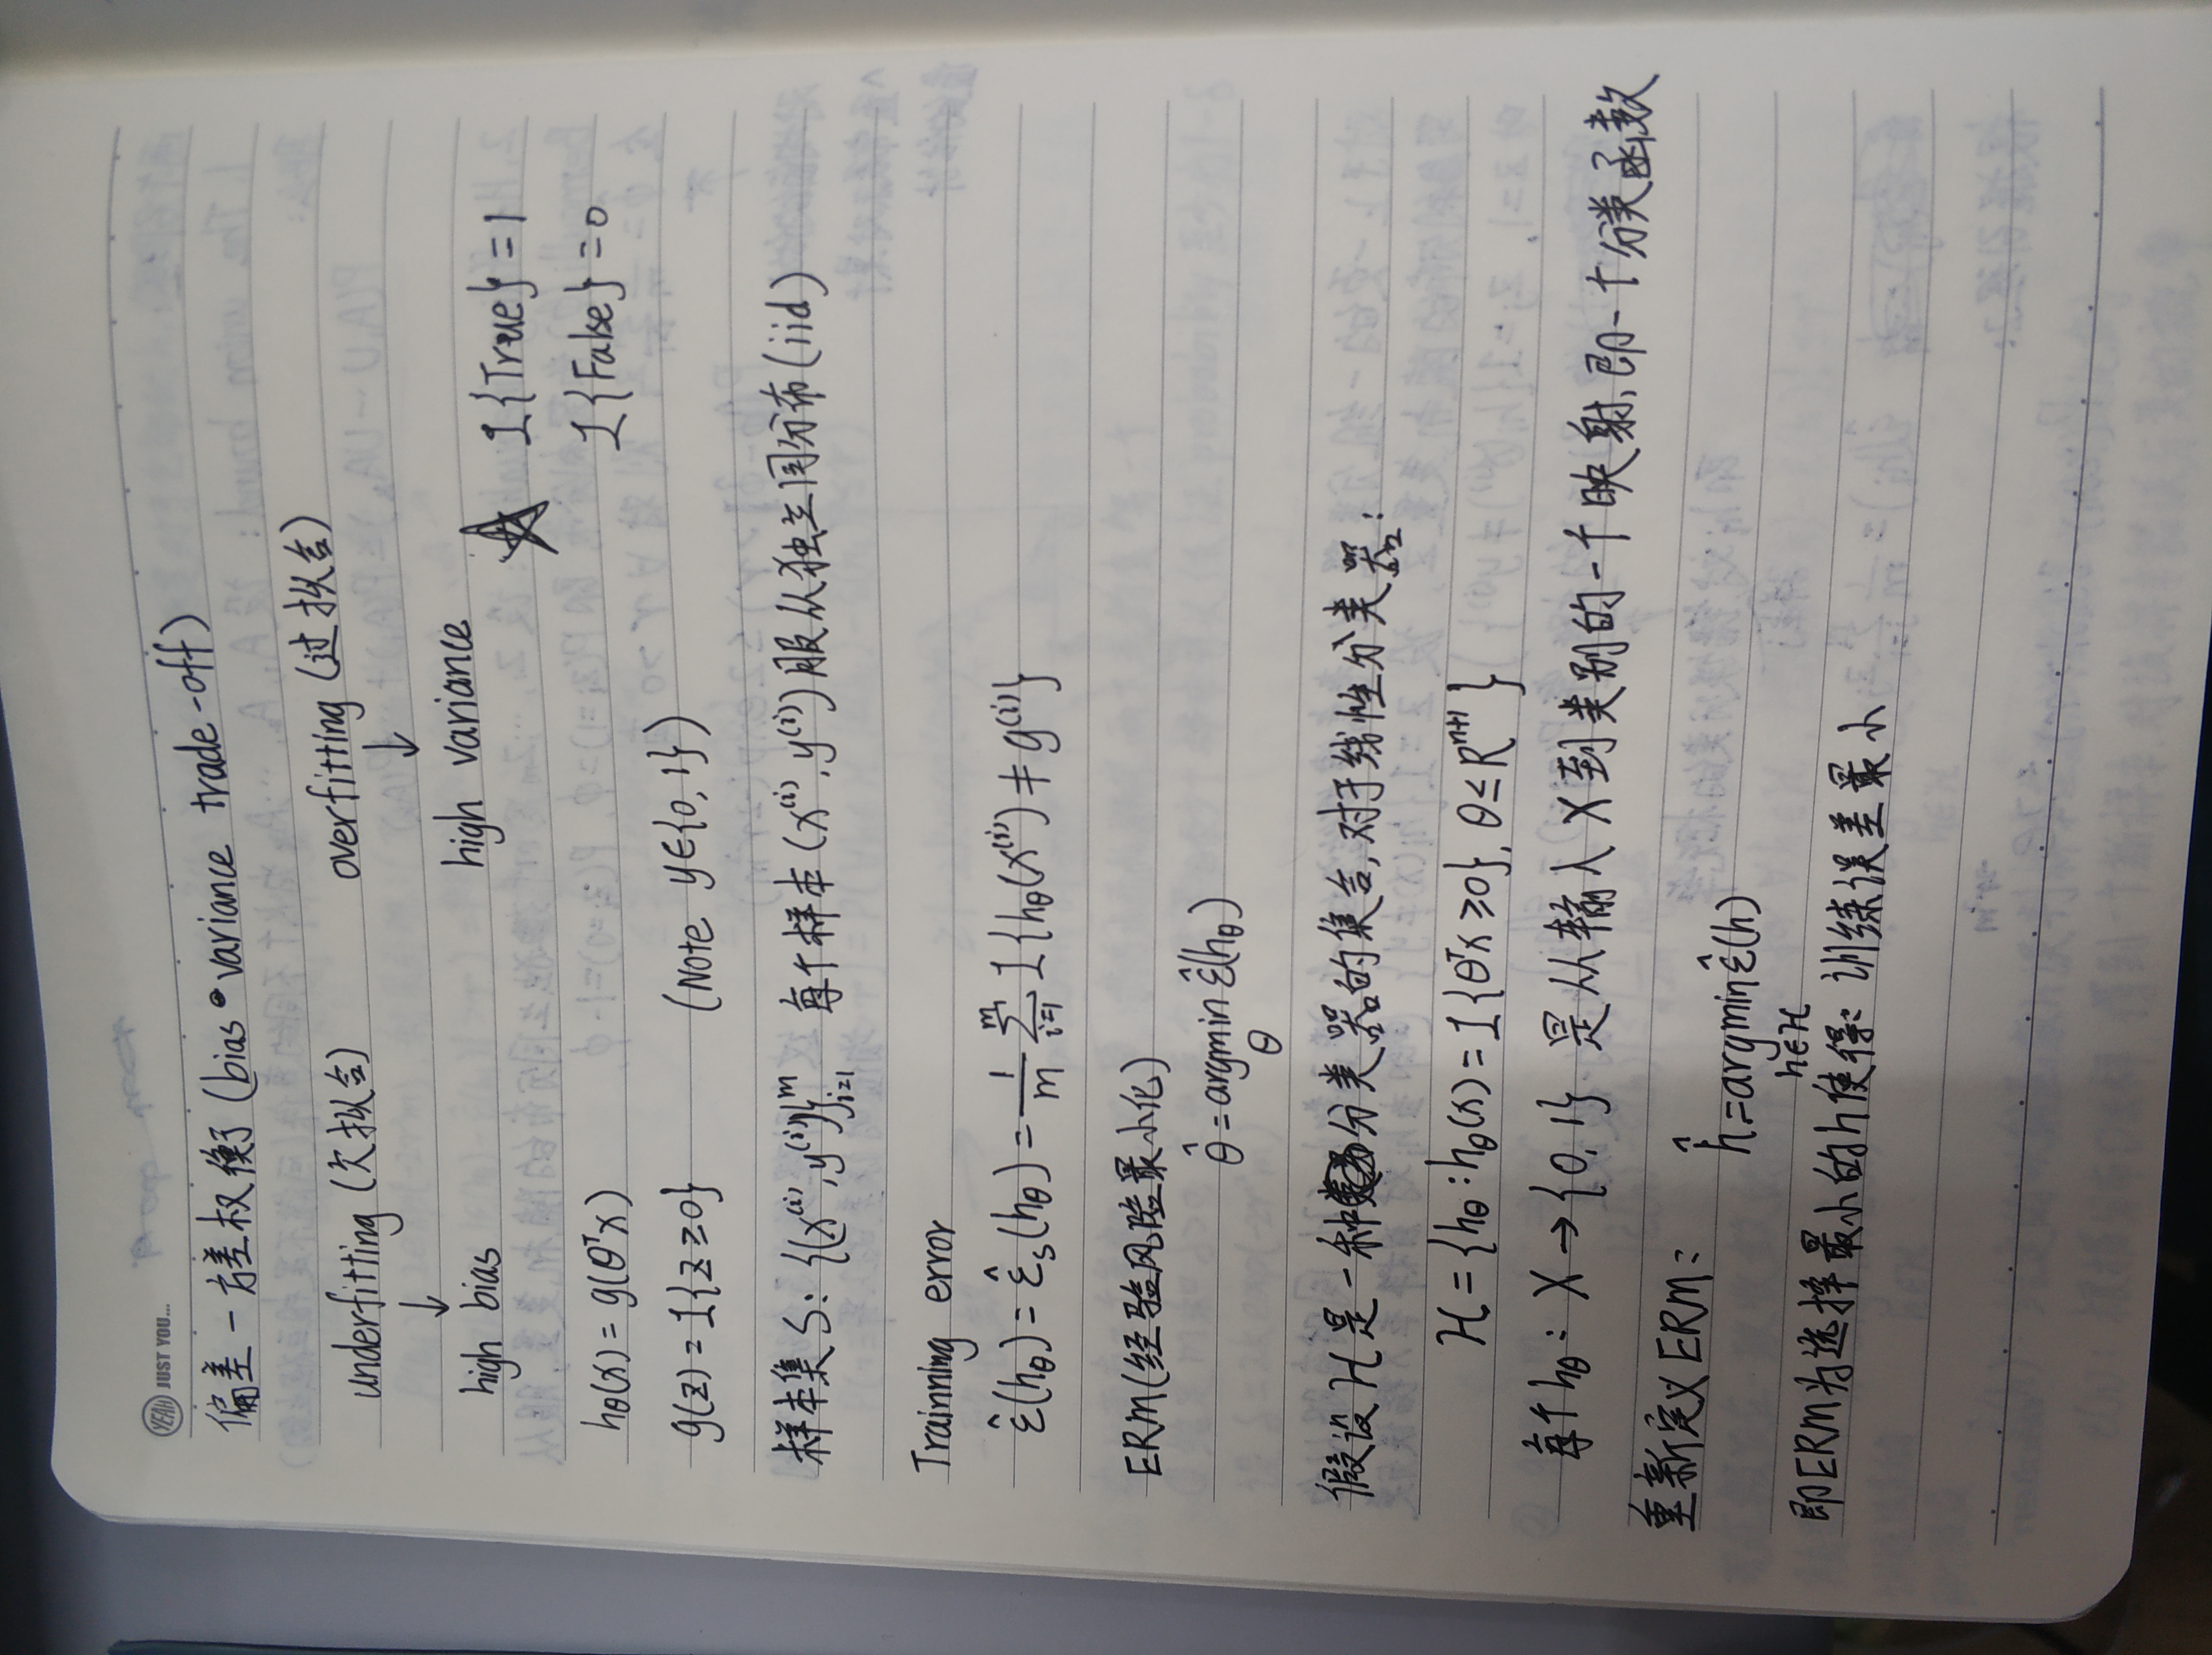 YEAH JUST YOU....
偏差-方差权衡 (bias·variance trade-off)
underfitting (欠拟合) overfitting (过拟合)
↓ ↓
high bias high variance ☆ 1{True}=1
hθ(x)=g(θᵀx) 1{False}=0
g(z)=1{z≥0} (Note y∈{0,1})
样本集S: {(x⁽ⁱ⁾,y⁽ⁱ⁾)}ᵐᵢ₌₁ 每个样本(x⁽ⁱ⁾,y⁽ⁱ⁾)服从独立同分布(iid)
Trainning error
ε̂(hθ)=ε̂s(hθ)=1/m ∑ᵐᵢ₌₁ 1{hθ(x⁽ⁱ⁾)≠y⁽ⁱ⁾}
ERM(经验风险最小化)
θ̂=argmin ε̂(hθ)
θ
假设H是一种分类器的集合,对于线性分类器:
H={hθ:hθ(x)=1{θᵀx≥0},θ≤Rⁿ⁺¹}
每个hθ: X→{0,1} 是从输入X到类别的一个映射,即一个分类函数
重新定义ERM:
ĥ=argmin ε̂(h)
h∈H
即ERM为选择最小的h使得: 训练误差最小